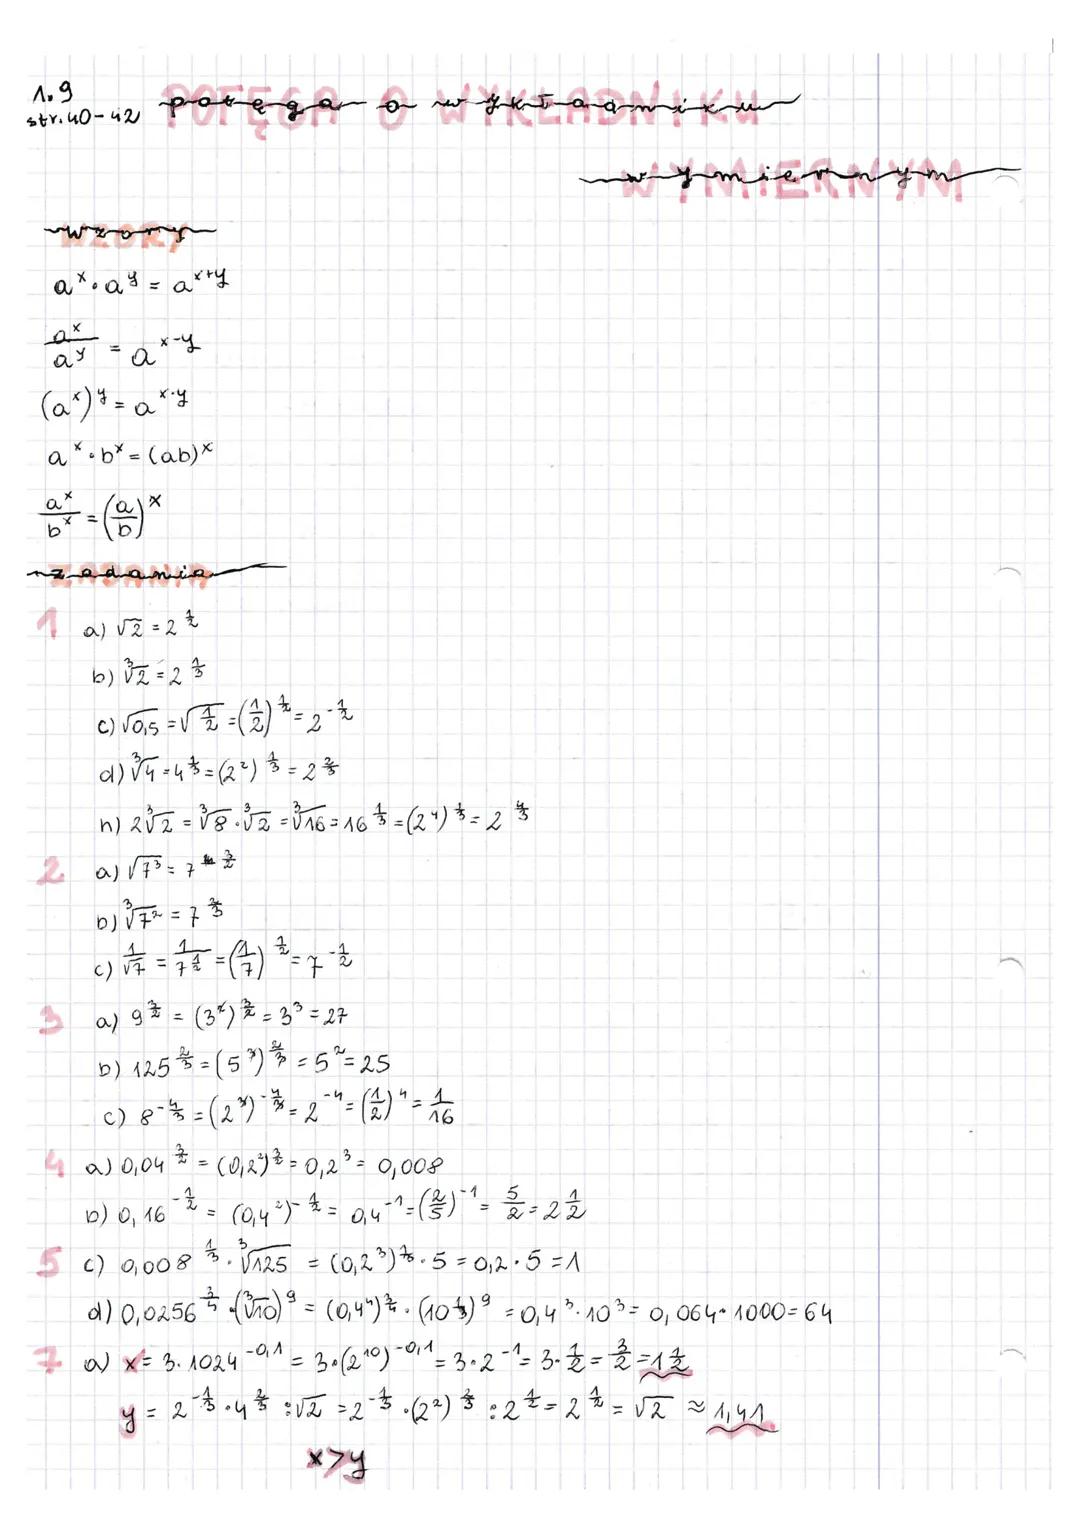 1.9
str. 40-42
potęga o wykładniku
POTĘGA O WYKŁADNIKU
wymiernym
WYMIERNYM
wzory
WZORY
a^x · a^y = a^(x+y)
a^x / a^y = a^(x-y)
(a^x)^y = a^(x·y)
a^x · b^x = (ab)^x
a^x / b^x = (a/b)^x
zadania
ZADANIA
1 a) √2 = 2^(1/2)
b) ∛2 = 2^(1/3)
c) √0,5 = √(1/2) = (1/2)^(1/2) = 2^(-1/2)
d) ∛4 = 4^(1/3) = (2²)^(1/3) = 2^(2/3)
h) 2∛2 = ∛8 · ∛2 = ∛16 = 16^(1/3) = (2⁴)^(1/3) = 2^(4/3)
2 a) √7³ = 7^(3/2)
b) ∛7² = 7^(2/3)
c) 1/√7 = 1/7^(1/2) = (1/7)^(1/2) = 7^(-1/2)
3 a) 9^(3/2) = (3²)^(3/2) = 3³ = 27
b) 125^(2/3) = (5³)^(2/3) = 5² = 25
c) 8^(-4/3) = (2³)^(-4/3) = 2^(-4) = (1/2)⁴ = 1/16
4 a) 0,04^(3/2) = (0,2²)^(3/2) = 0,2³ = 0,008
b) 0,16^(-1/2) = (0,4²)^(-1/2) = 0,4^(-1) = (2/5)^(-1) = 5/2 = 2 1/2
5 c) 0,008^(1/3) · ∛125 = (0,2³)^(1/3) · 5 = 0,2 · 5 = 1
d) 0,0256^(3/4) · (∛10)⁹ = (0,4⁴)^(3/4) · (10^(1/3))⁹ = 0,4³ · 10³ = 0,064 · 1000 = 64
7 a) x = 3 · 1024^(-0,1) = 3 · (2^10)^(-0,1) = 3 · 2^(-1) = 3 · 1/2 = 3/2 = 1 1/2
y = 2^(-1/3) · 4^(2/3) : √2 = 2^(-1/3) · (2²)^(2/3) : 2^(1/2) = 2^(1/2) = √2 ≈ 1,41
x > y